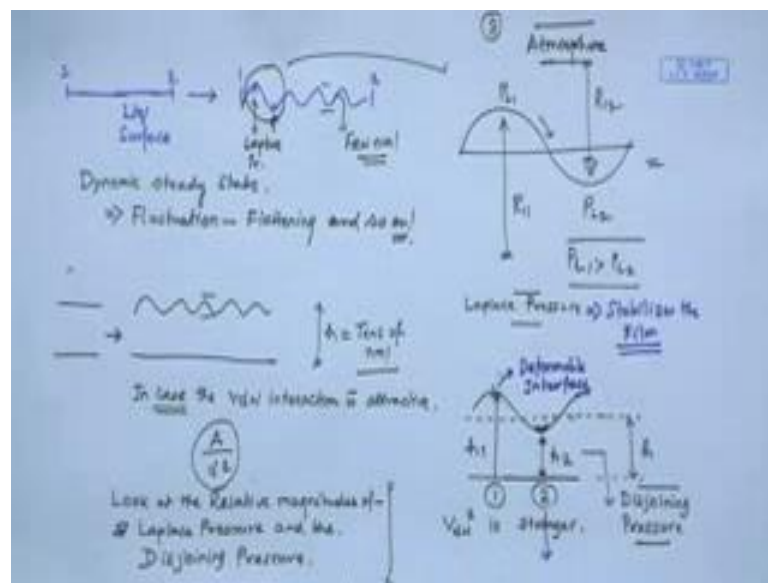 1 2
Liq
Surface
1 2
Laplace
Pr.
Few nm!
Dynamic steady State.
⇒ Fluctuation – Flattening and so on!
h = Tens of
nm!
In case the vdW interaction is attractive.
A
Look at the Relative magnitudes of
Laplace Pressure and the
Disjoining Pressure.
3
Atmosphere
PL1
R12
R11
PL2
PL1 > PL2
Laplace Pressure ⇒ Stabilizes the
Film
Deformable
Interface
h1
h2
h
1 2
Disjoining
Pressure
is stronger.